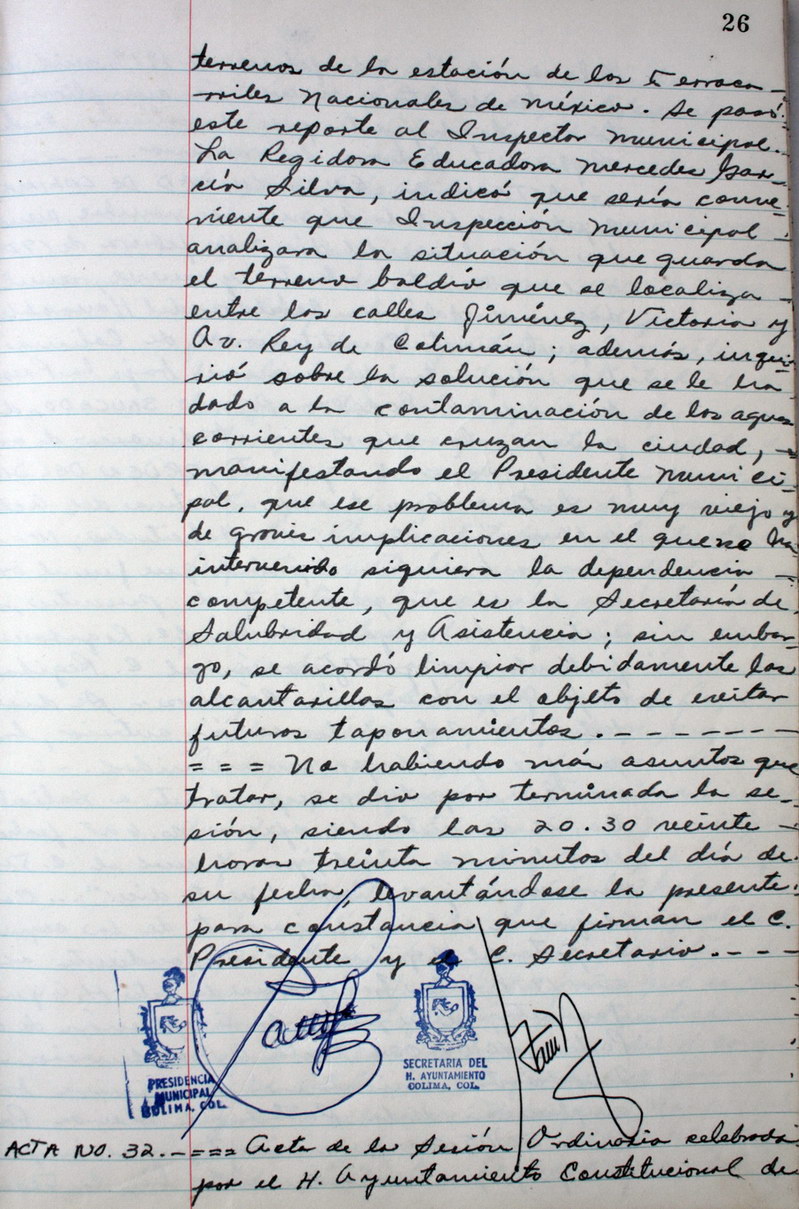 26
terrenos de la estación de los Ferroca-
rriles Nacionales de México. Se pasó
este reporte al Inspector Municipal.
La Regidora Educadora Mercedes Gar-
cía Silva, indicó que sería conve-
niente que Inspección Municipal
analizara la situación que guarda
el terreno baldío que se localiza
entre las calles Jiménez, Victoria y
Av. Rey de Colimán; además, inqui-
rió sobre la solución que se le ha
dado a la contaminación de las aguas
corrientes que cruzan la ciudad, -
manifestando el Presidente Munici-
pal, que ese problema es muy viejo y
de graves implicaciones en el que no ha
intervenido siquiera la dependencia -
competente, que es la Secretaría de
Salubridad y Asistencia; sin embar-
go, se acordó limpiar debidamente las
alcantarillas con el objeto de evitar
futuros taponamientos. - - - - - - -
= = = No habiendo más asuntos que
tratar, se dio por terminada la se-
sión, siendo las 20.30 veinte -
horas treinta minutos del día de
su fecha, levantándose la presente
para constancia que firman el C.
Presidente y el C. Secretario. - - -
PRESIDENCIA
MUNICIPAL
COLIMA, COL.
SECRETARIA DEL
H. AYUNTAMIENTO
COLIMA, COL.
ACTA NO. 32.- = = = Acta de la Sesión Ordinaria celebrada
por el H. Ayuntamiento Constitucional de